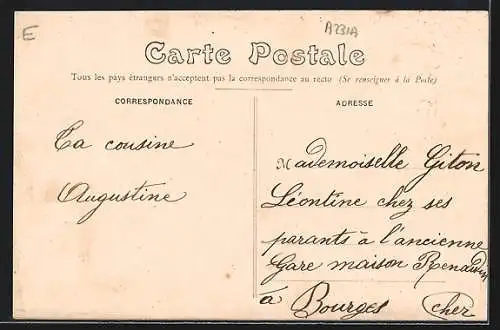 E
A231A
Carte Postale
Tous les pays étrangers n'acceptent pas la correspondance au recto (Se renseigner à la Poste)
CORRESPONDANCE
ADRESSE
Ta cousine
Augustine
Mademoiselle Giton
Léontine chez ses
parants à l'ancienne
Gare maison
à Bourges cher